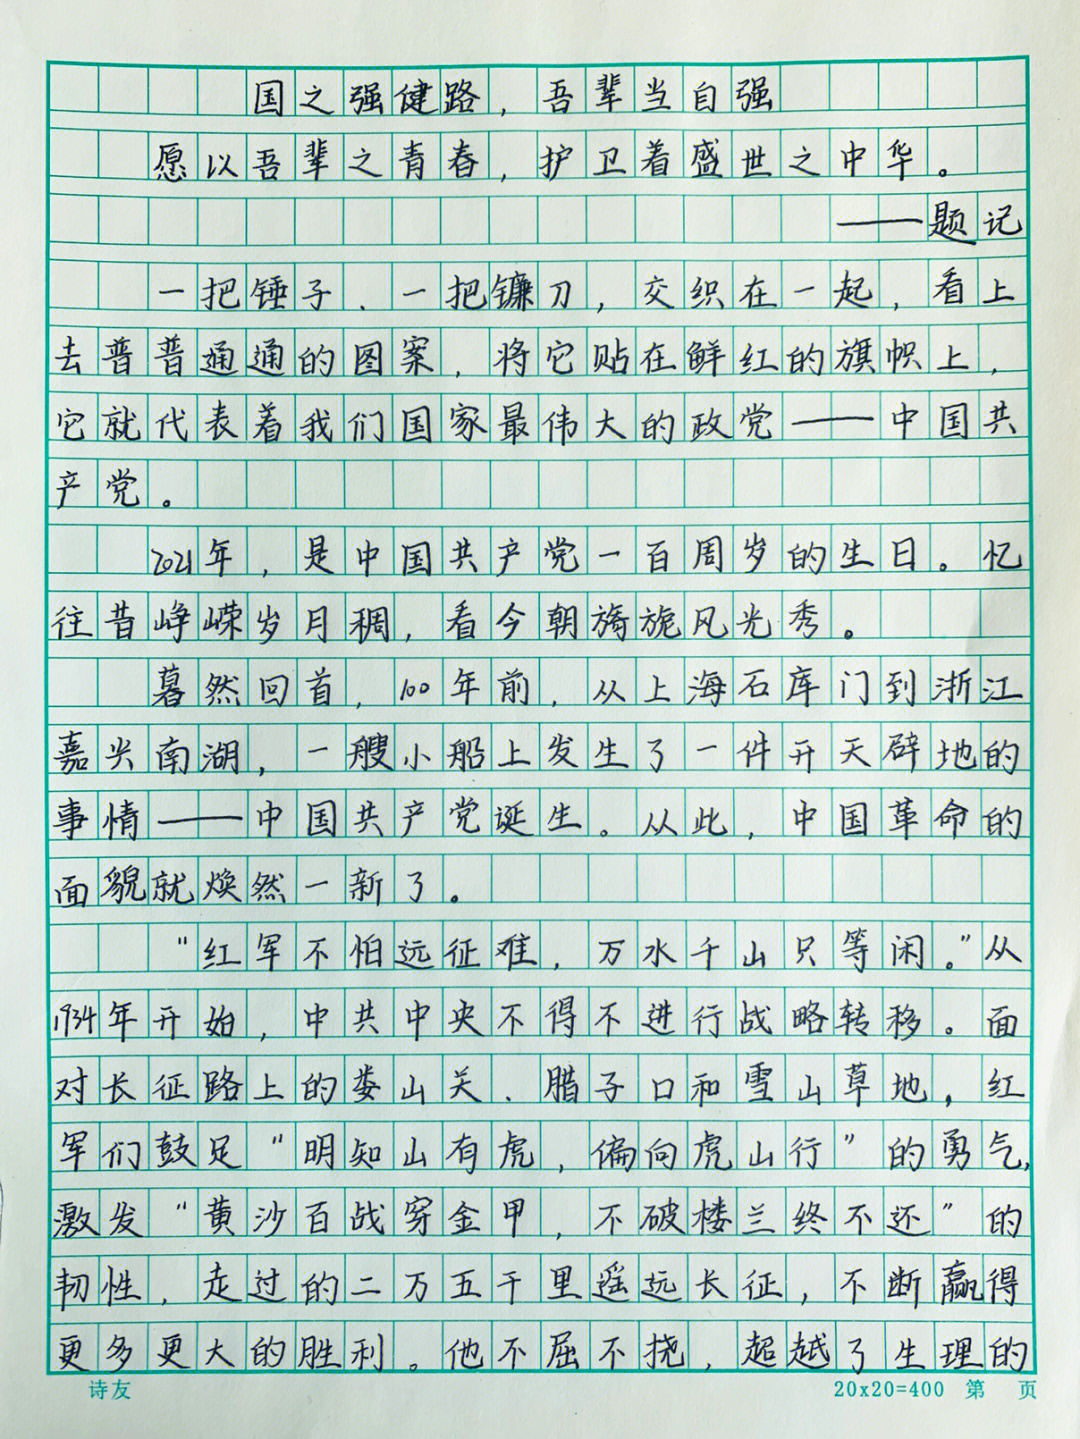 国之强健路，吾辈当自强
愿以吾辈之青春，护卫着盛世之中华。
——题记
一把锤子、一把镰刀，交织在一起，看上
去普普通通的图案，将它贴在鲜红的旗帜上，
它就代表着我们国家最伟大的政党——中国共
产党。
2021年，是中国共产党一百周岁的生日。忆
往昔峥嵘岁月稠，看今朝旖旎风光秀。
暮然回首，100年前，从上海石库门到浙江
嘉兴南湖，一艘小船上发生了一件开天辟地的
事情——中国共产党诞生。从此，中国革命的
面貌就焕然一新了。
“红军不怕远征难，万水千山只等闲。”从
1934年开始，中共中央不得不进行战略转移。面
对长征路上的娄山关、腊子口和雪山草地，红
军们鼓足“明知山有虎，偏向虎山行”的勇气，
激发“黄沙百战穿金甲，不破楼兰终不还”的
韧性，走过的二万五千里遥远长征，不断赢得
更多更大的胜利。他不屈不挠，超越了生理的
诗友 20x20=400 第 页